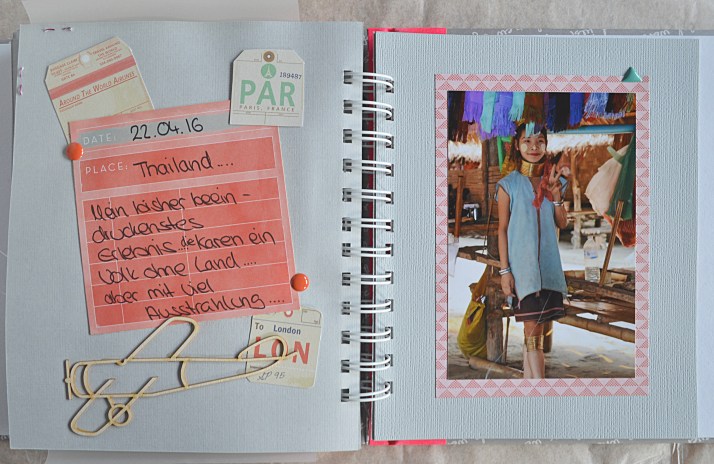 AROUND THE WORLD AIRLINES
199497
PAR
PARIS, FRANCE
DATE: 22.04.16
PLACE: Thailand....
Mein bisher beein-
druckenstes
Erlebnis...die Karen ein
Volk ohne Land....
aber mit viel
Ausstrahlung....
To London
LON